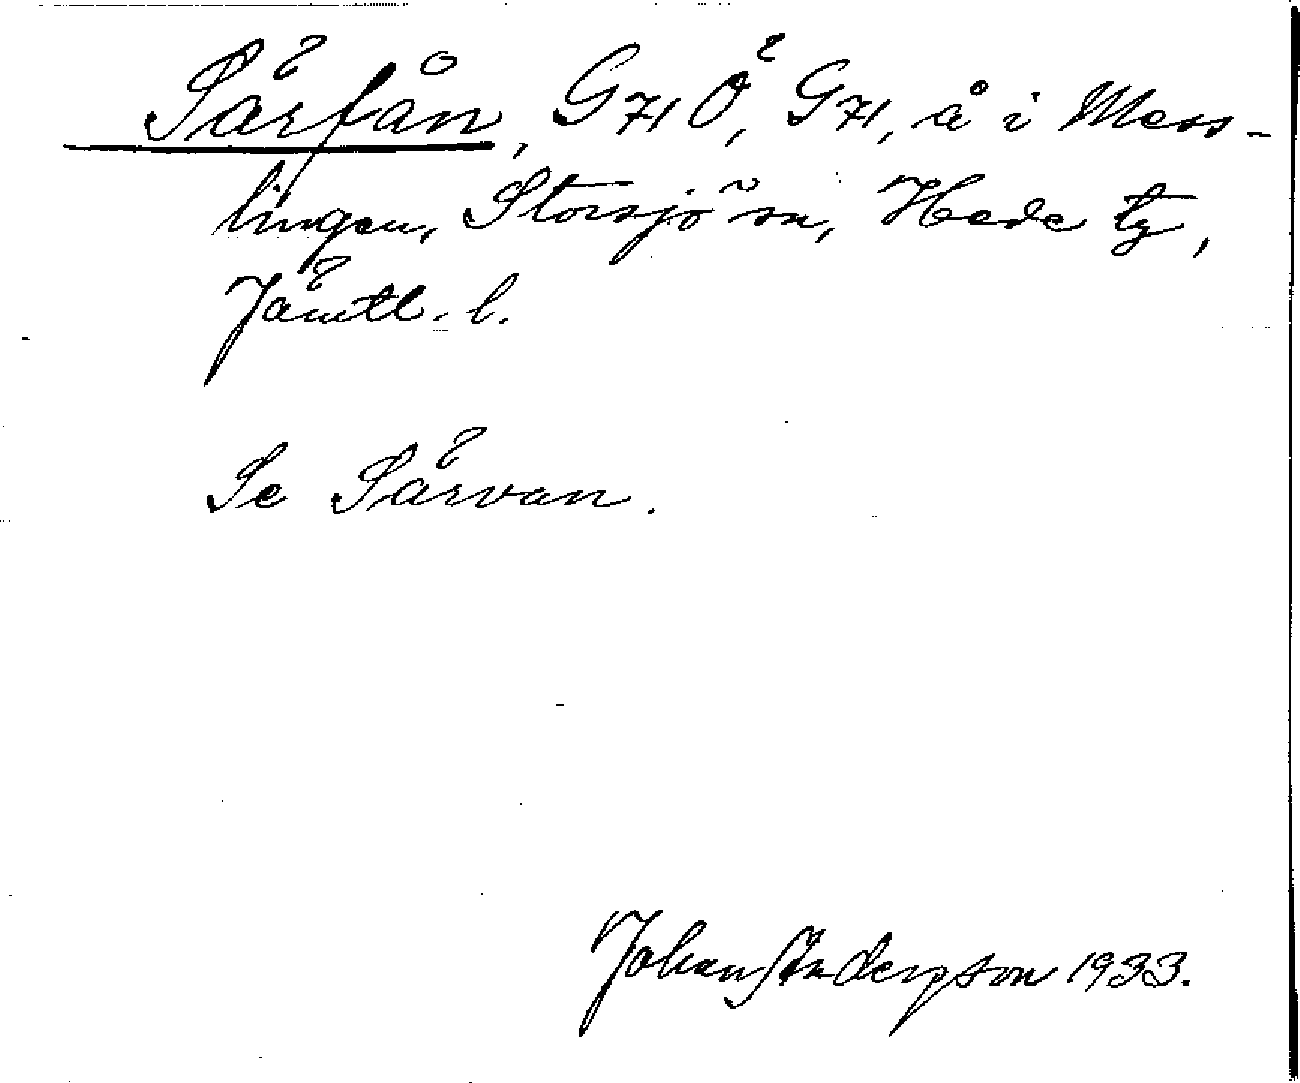 Särfån, G71Ö, G71, å i Mess-
lingen, Storsjö sn, Hede tg,
Jämtl. l.
Se Särvan.
Johan Anderson 1933.